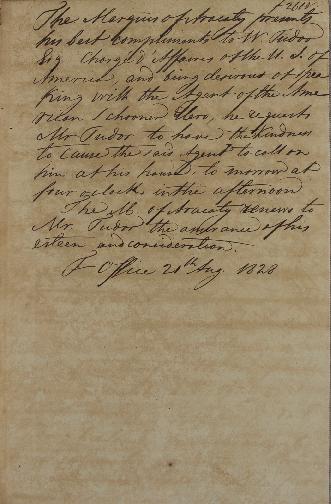 The Marquis of Aracaty presents
his best compliments to W. Tudor
Esq Chargé d'Affaires of the U. S. of
America, and being desirous of spea
king with the Agent of the Ame
rican Schooner Hero, he requests
Mr Tudor to have the kindness
to cause the said Agent to call on
him at his house to morrow at
four o'clock in the afternoon
The M. of Aracaty renews to
Mr. Tudor the assurance of his
esteem and consideration.
F. Office 20th Aug. 1828